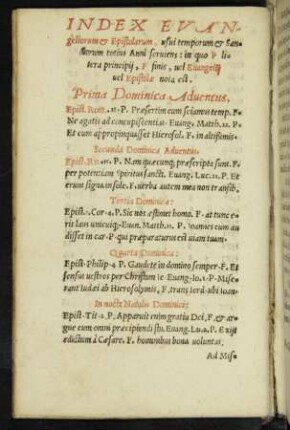 INDEX EVAN-
geliorum & Epistolarum, usui temporum & San-
ctorum totius Anni serviens: in quo P li-
tera principij, F finis, vel Evangelij
vel Epistolæ nota est.
Prima Dominica Adventus.
Epist. Rom. 13. P. Præsertim cum sciamus temp. F.
Ne agatis ad concupiscentias. Euang. Matth. 21. P.
Et cum appropinquasset Hierosol. F. in altissimis.
Secunda Dominica Adventus.
Epist. Ro. 15. P. Nam quæcunq; præscripta sunt. F.
per potentiam Spiritus sancti. Euang. Luc. 21. P. Et
erunt signa in sole. F. verba autem mea non transib.
Tertia Dominica:
Epist. 1. Cor. 4. P. Sic nos æstimet homo. F. at tunc e-
rit laus unicuiq; Euan. Matth. 11. P. Ioannes cum au-
disset in car- F. qui præparaturus est viam tuam.
Quarta Dominica:
Epist. Philip. 4 P. Gaudete in domino semper. F. Et
sensus vestros per Christum Ie- Euang. Io. 1. P. Mise-
rant Iudæi ab Hierosolymis, F. trans Iord. ubi Ioan-
In nocte Natalis Dominici:
Epist. Tit. 2. P. Apparuit enim gratia Dei, F. & ar-
gue cum omni præcipiendi stu. Euang. Lu. 2. P. Exijt
edictum à Cæsare. F. hominibus bona voluntas.
Ad Mis-